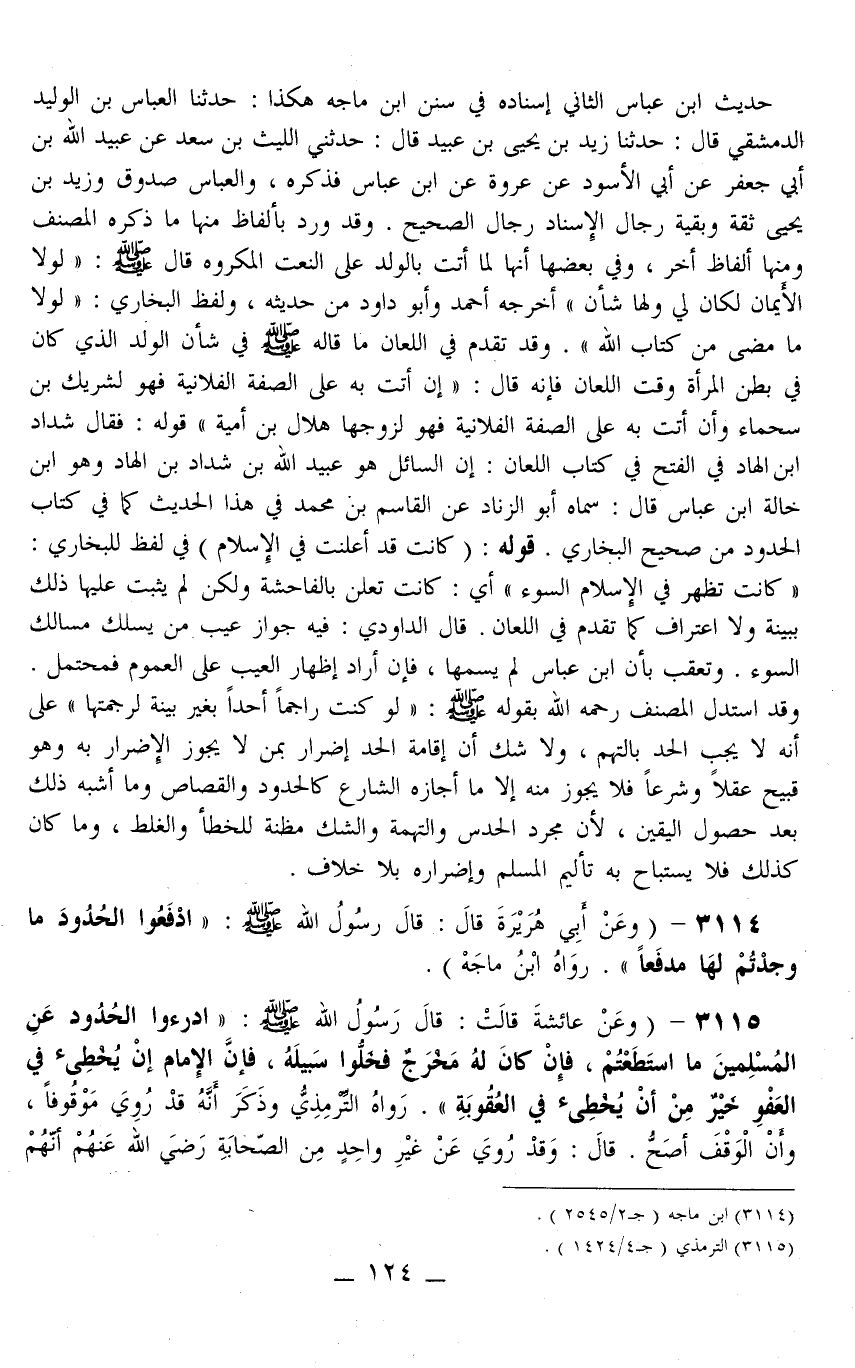 حديث ابن عباس الثاني إسناده في سنن ابن ماجه هكذا : حدثنا العباس بن الوليد
الدمشقي قال : حدثنا زيد بن يحيى بن عبيد قال : حدثني الليث بن سعد عن عبيد الله بن
أبي جعفر عن أبي الأسود عن عروة عن ابن عباس فذكره ، والعباس صدوق وزيد بن
يحيى ثقة وبقية رجال الإسناد رجال الصحيح . وقد ورد بألفاظ منها ما ذكره المصنف
ومنها ألفاظ أخر ، وفي بعضها أنها لما أتت بالولد على النعت المكروه قال ﷺ : « لولا
الأيمان لكان لي ولها شأن » أخرجه أحمد وأبو داود من حديثه ، ولفظ البخاري : « لولا
ما مضى من كتاب الله » . وقد تقدم في اللعان ما قاله ﷺ في شأن الولد الذي كان
في بطن المرأة وقت اللعان فإنه قال : « إن أتت به على الصفة الفلانية فهو لشريك بن
سحماء وأن أتت به على الصفة الفلانية فهو لزوجها هلال بن أمية » قوله : فقال شداد
ابن الهاد في الفتح في كتاب اللعان : إن السائل هو عبيد الله بن شداد بن الهاد وهو ابن
خالة ابن عباس قال : سماه أبو الزناد عن القاسم بن محمد في هذا الحديث كما في كتاب
الحدود من صحيح البخاري . قوله : ( كانت قد أعلنت في الإسلام ) في لفظ للبخاري :
« كانت تظهر في الإسلام السوء » أي : كانت تعلن بالفاحشة ولكن لم يثبت عليها ذلك
ببينة ولا اعتراف كما تقدم في اللعان. قال الداودي : فيه جواز عيب من يسلك مسالك
السوء . وتعقب بأن ابن عباس لم يسمها ، فإن أراد إظهار العيب على العموم فمحتمل .
وقد استدل المصنف رحمه الله بقوله ﷺ : « لو كنت راجماً أحداً بغير بينة لرجمتها » على
أنه لا يجب الحد بالتهم ، ولا شك أن إقامة الحد إضرار بمن لا يجوز الإضرار به وهو
قبيح عقلاً وشرعاً فلا يجوز منه إلا ما أجازه الشارع كالحدود والقصاص وما أشبه ذلك
بعد حصول اليقين ، لأن مجرد الحدس والتهمة والشك مظنة للخطأ والغلط ، وما كان
كذلك فلا يستباح به تأليم المسلم وإضراره بلا خلاف .
٣١١٤ - ( وعَنْ أَبِي هُرَيْرَةَ قالَ : قالَ رسُولُ الله ﷺ : « ادْفَعُوا الحُدُودَ ما
وجدْتُمْ لهَا مدفَعاً » . روَاهُ ابْنُ ماجَهْ ) .
٣١١٥ - ( وعَنْ عائشةَ قالَتْ : قالَ رَسُولُ الله ﷺ : « ادرءوا الحُدُود عَنِ
المُسْلِمينَ ما استَطَعْتُمْ ، فإنْ كانَ لهُ مَخْرَجٌ فخَلُّوا سَبيلَهُ ، فإنَّ الإمام إنْ يُخْطِىء في
العَفْوِ خَيْرٌ مِنْ أنْ يُخْطِىء في العُقُوبَةِ » . رَواهُ التِّرمِذيُّ وذَكَرَ أنَّهُ قدْ رُوِيَ مَوْقُوفاً ،
وأنْ الْوَقْفَ أصَحُّ . قالَ : وَقدْ رُوِيَ عَنْ غيْرِ واحِدٍ مِن الصّحابَةِ رَضيَ الله عَنهُمْ أنّهُمْ
(٣١١٤) ابن ماجه ( جـ٢/ ٢٥٤٥ ) .
(٣١١٥) الترمذي ( جـ٤/ ١٤٢٤ ) .
– ١٢٤ –